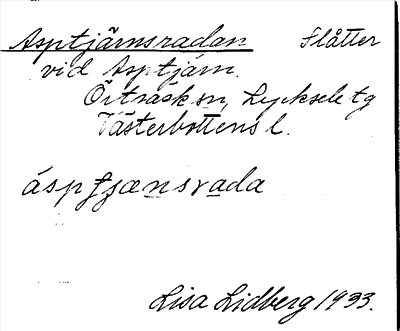 Asptjärnsradan Slåtter
vid Asptjärn.
Örträsk sn, Lycksele tg
Västerbottens l.
áspt̬jænsrada
Lisa Lidberg 1933.